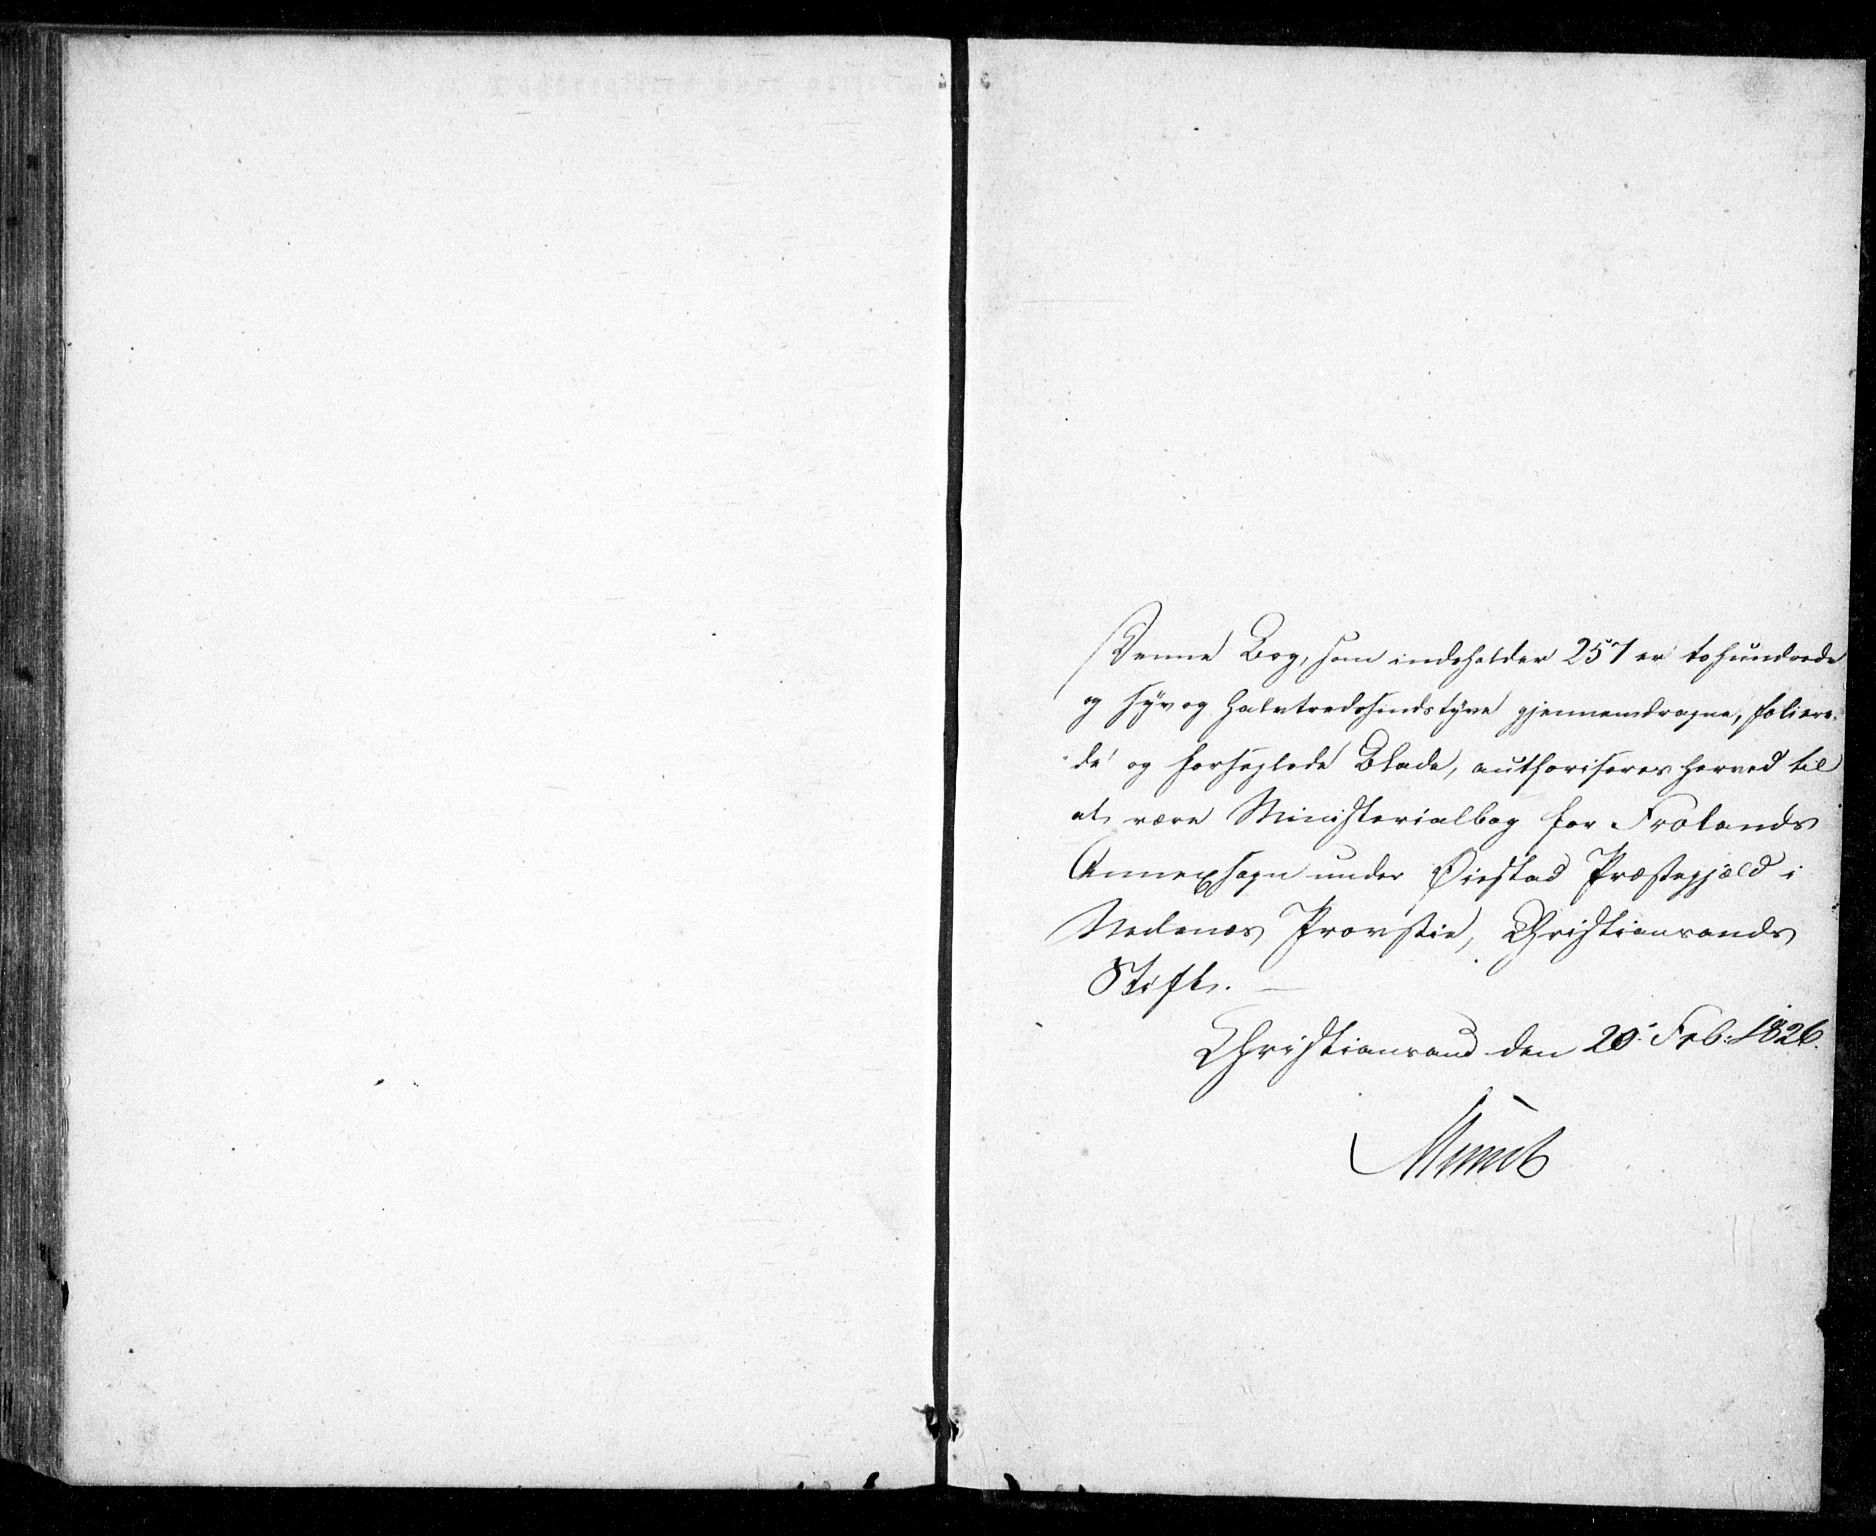 Denne Bog, som indeholder 257 er tohundrede
og syv og halvtredssindstyve gjennemdragne, foliere-
de og forseglede Blade, authoriseres herved til
at være Ministerialbog for Frolands
Annexsogn under Øiestad Præstegjæld i
Nedenæs Provstie, Christiansands
Stift. —
Christiansand den 20. Feb: 1826.
Munch